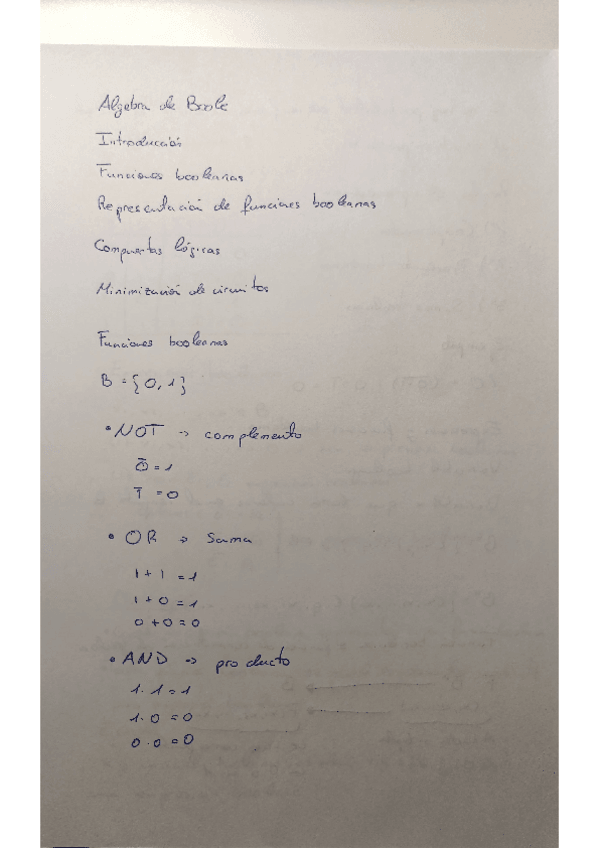 Algebra de Boole
Introducción
Funciones booleanas
Representación de funciones booleanas
Compuertas lógicas
Minimización de circuitos
Funciones booleanas
B = {0, 1}
• NOT → complemento
0̄ = 1
1̄ = 0
• OR → Suma
1 + 1 = 1
1 + 0 = 1
0 + 0 = 0
• AND → producto
1 · 1 = 1
1 · 0 = 0
0 · 0 = 0